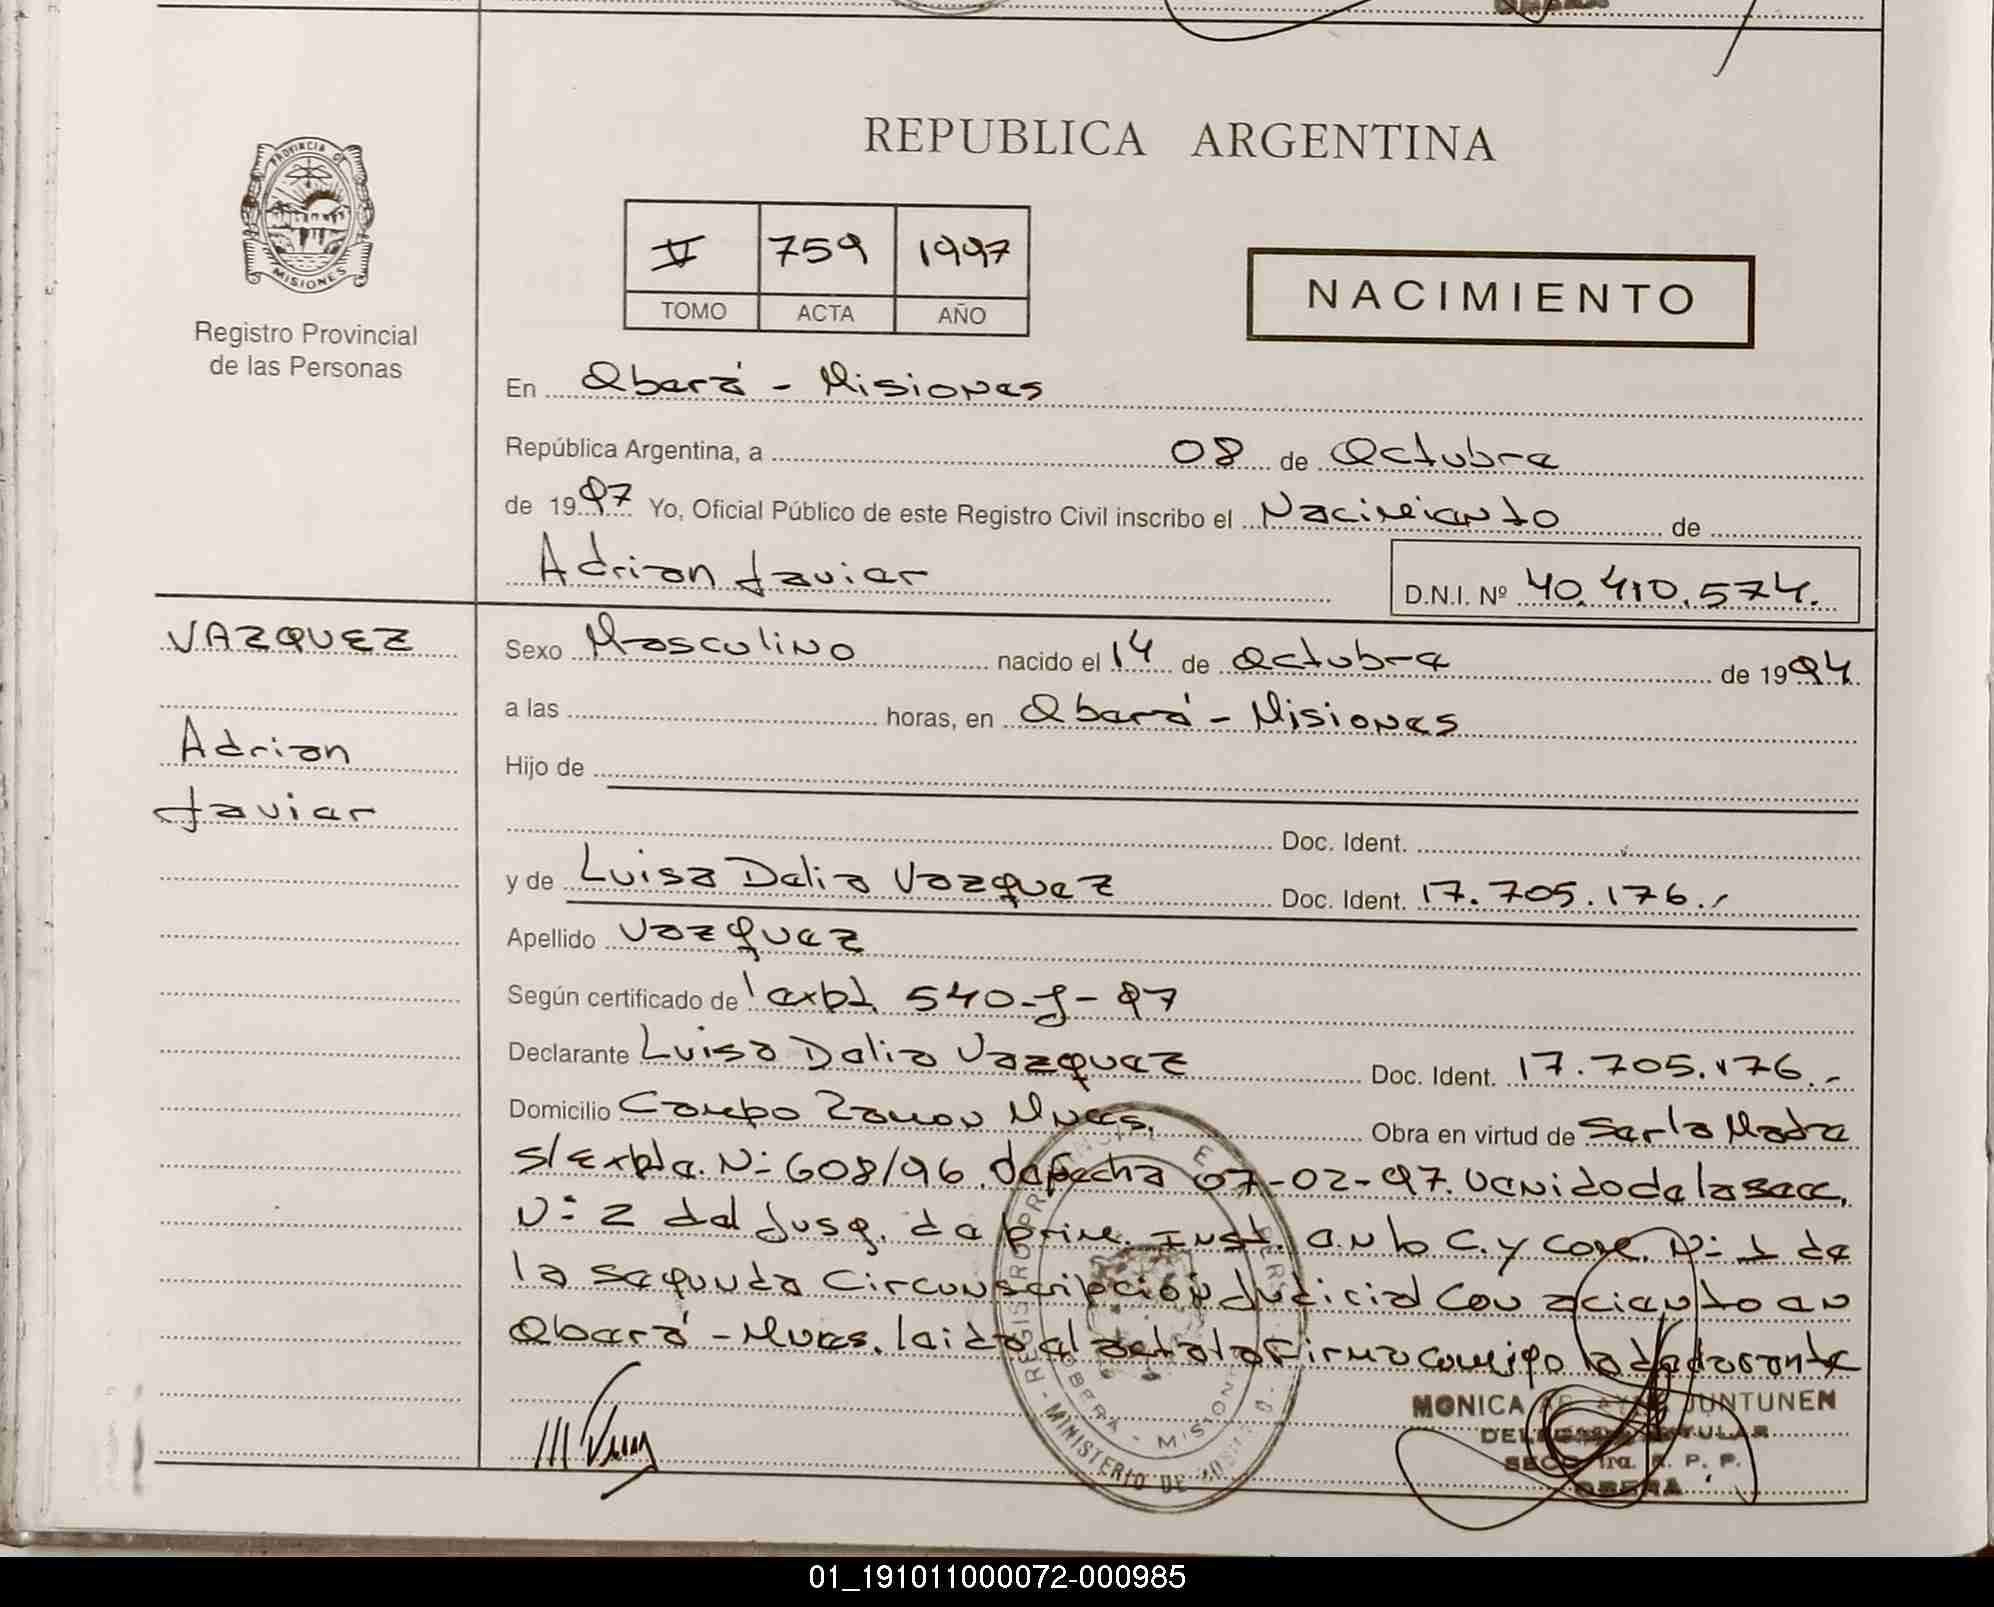 OBERA
PROVINCIA DE
MISIONES
Registro Provincial
de las Personas
REPUBLICA ARGENTINA
V 759 1997
TOMO ACTA AÑO
NACIMIENTO
En Oberá - Misiones
República Argentina, a 08 de Octubre
de 1997 Yo, Oficial Público de este Registro Civil inscribo el Nacimiento de
Adrian Javier
D.N.I. Nº 40.410.574.
VAZQUEZ
Adrian
Javier
Sexo Masculino nacido el 14 de Octubre de 1994.
a las horas, en Oberá - Misiones
Hijo de
Doc. Ident.
y de Luisa Delia Vazquez Doc. Ident. 17.705.176.-
Apellido Vazquez
Según certificado de expt. 540-J-97
Declarante Luisa Delia Vazquez Doc. Ident. 17.705.176.-
Domicilio Campo Ramon Mnes. Obra en virtud de Ser la Madre
s/Expte. Nº 608/96. de fecha 07-02-97. Venido de la Sec.
Nº 2 del Jusg. de prim. Inst. en lo C. y Com. Nº 1 de
la segunda Circunscripción Judicial Con aciento en
Oberá - Mnes. leida el acta la Firma conmigo la declarante
REGISTRO PROVINCIAL DE PERS
MINISTERIO DE
OBERA - MISIONES
MONICA JUNTUNEN
DELEGADO TITULAR
SECC. 1ra. R. P. P.
OBERA
01_191011000072-000985